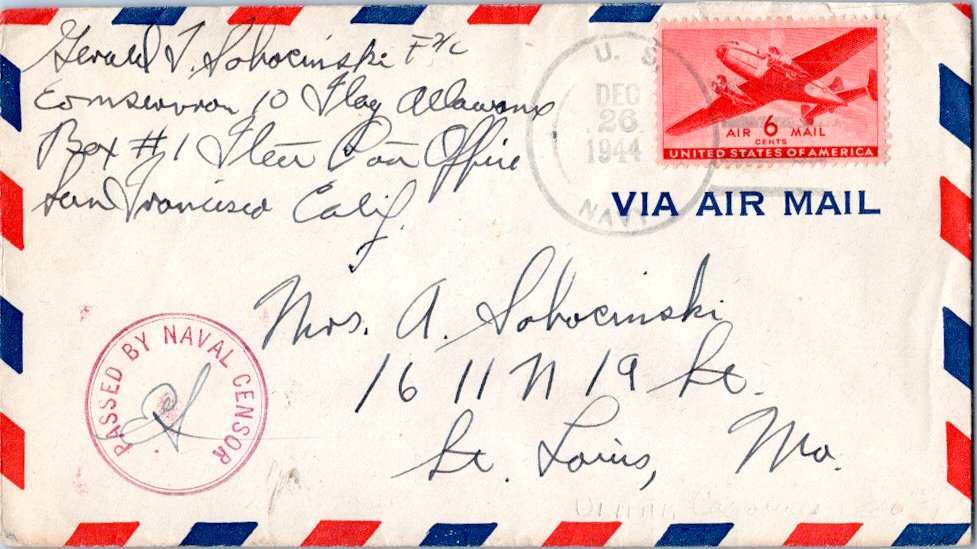 Gerald T. Sobocinski F 2/c
Comservron 10 Flag Allowance
Box #1 Fleet Post Office
San Francisco Calif.
U. S.
DEC
26
1944
NAVY
AIR 6 MAIL
CENTS
UNITED STATES OF AMERICA
VIA AIR MAIL
Mrs. A. Sobocinski
1611 N 19 St.
St. Louis, Mo.
PASSED BY NAVAL CENSOR